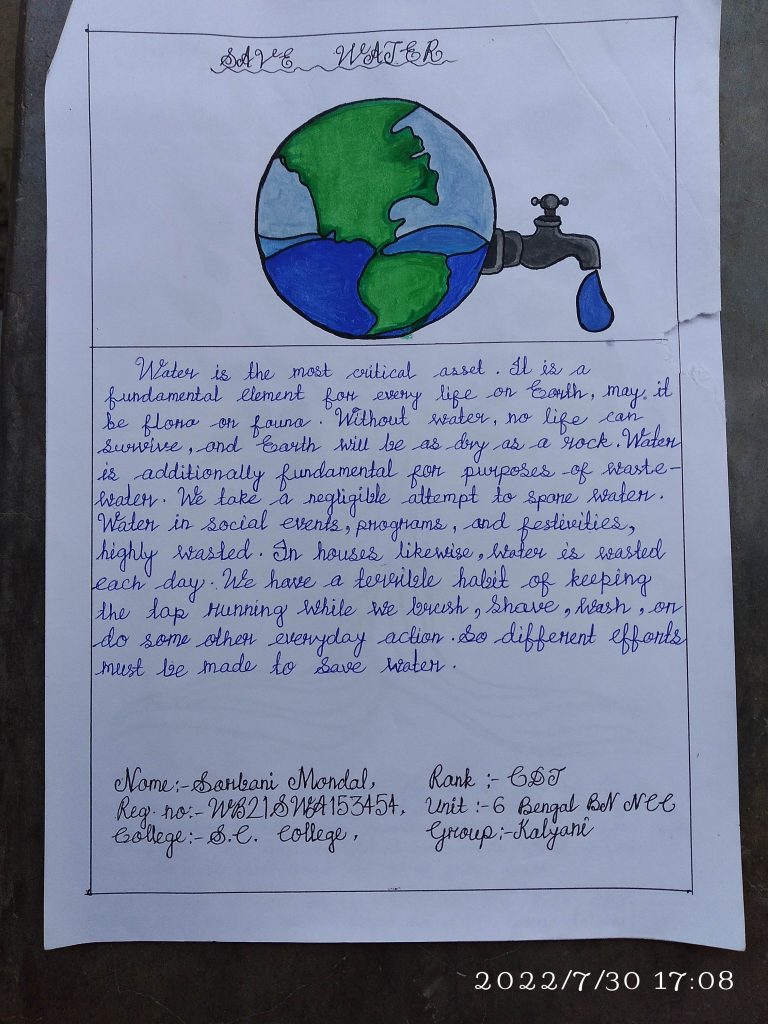 SAVE WATER
Water is the most critical asset. It is a
fundamental element for every life on Earth, may it
be flora or fauna. Without water, no life can
survive, and Earth will be as dry as a rock. Water
is additionally fundamental for purposes of waste-
water. We take a negligible attempt to spare water.
Water in social events, programs, and festivities,
highly wasted. In houses likewise, water is wasted
each day. We have a terrible habit of keeping
the tap running while we brush, shave, wash, or
do some other everyday action. So different efforts
must be made to save water.
Name:- Sarbani Mondal, Rank :- CDT
Reg. no:- WB21SWA153454, Unit :- 6 Bengal BN NCC
College:- S.C. College, Group:- Kalyani
2022/7/30 17:08